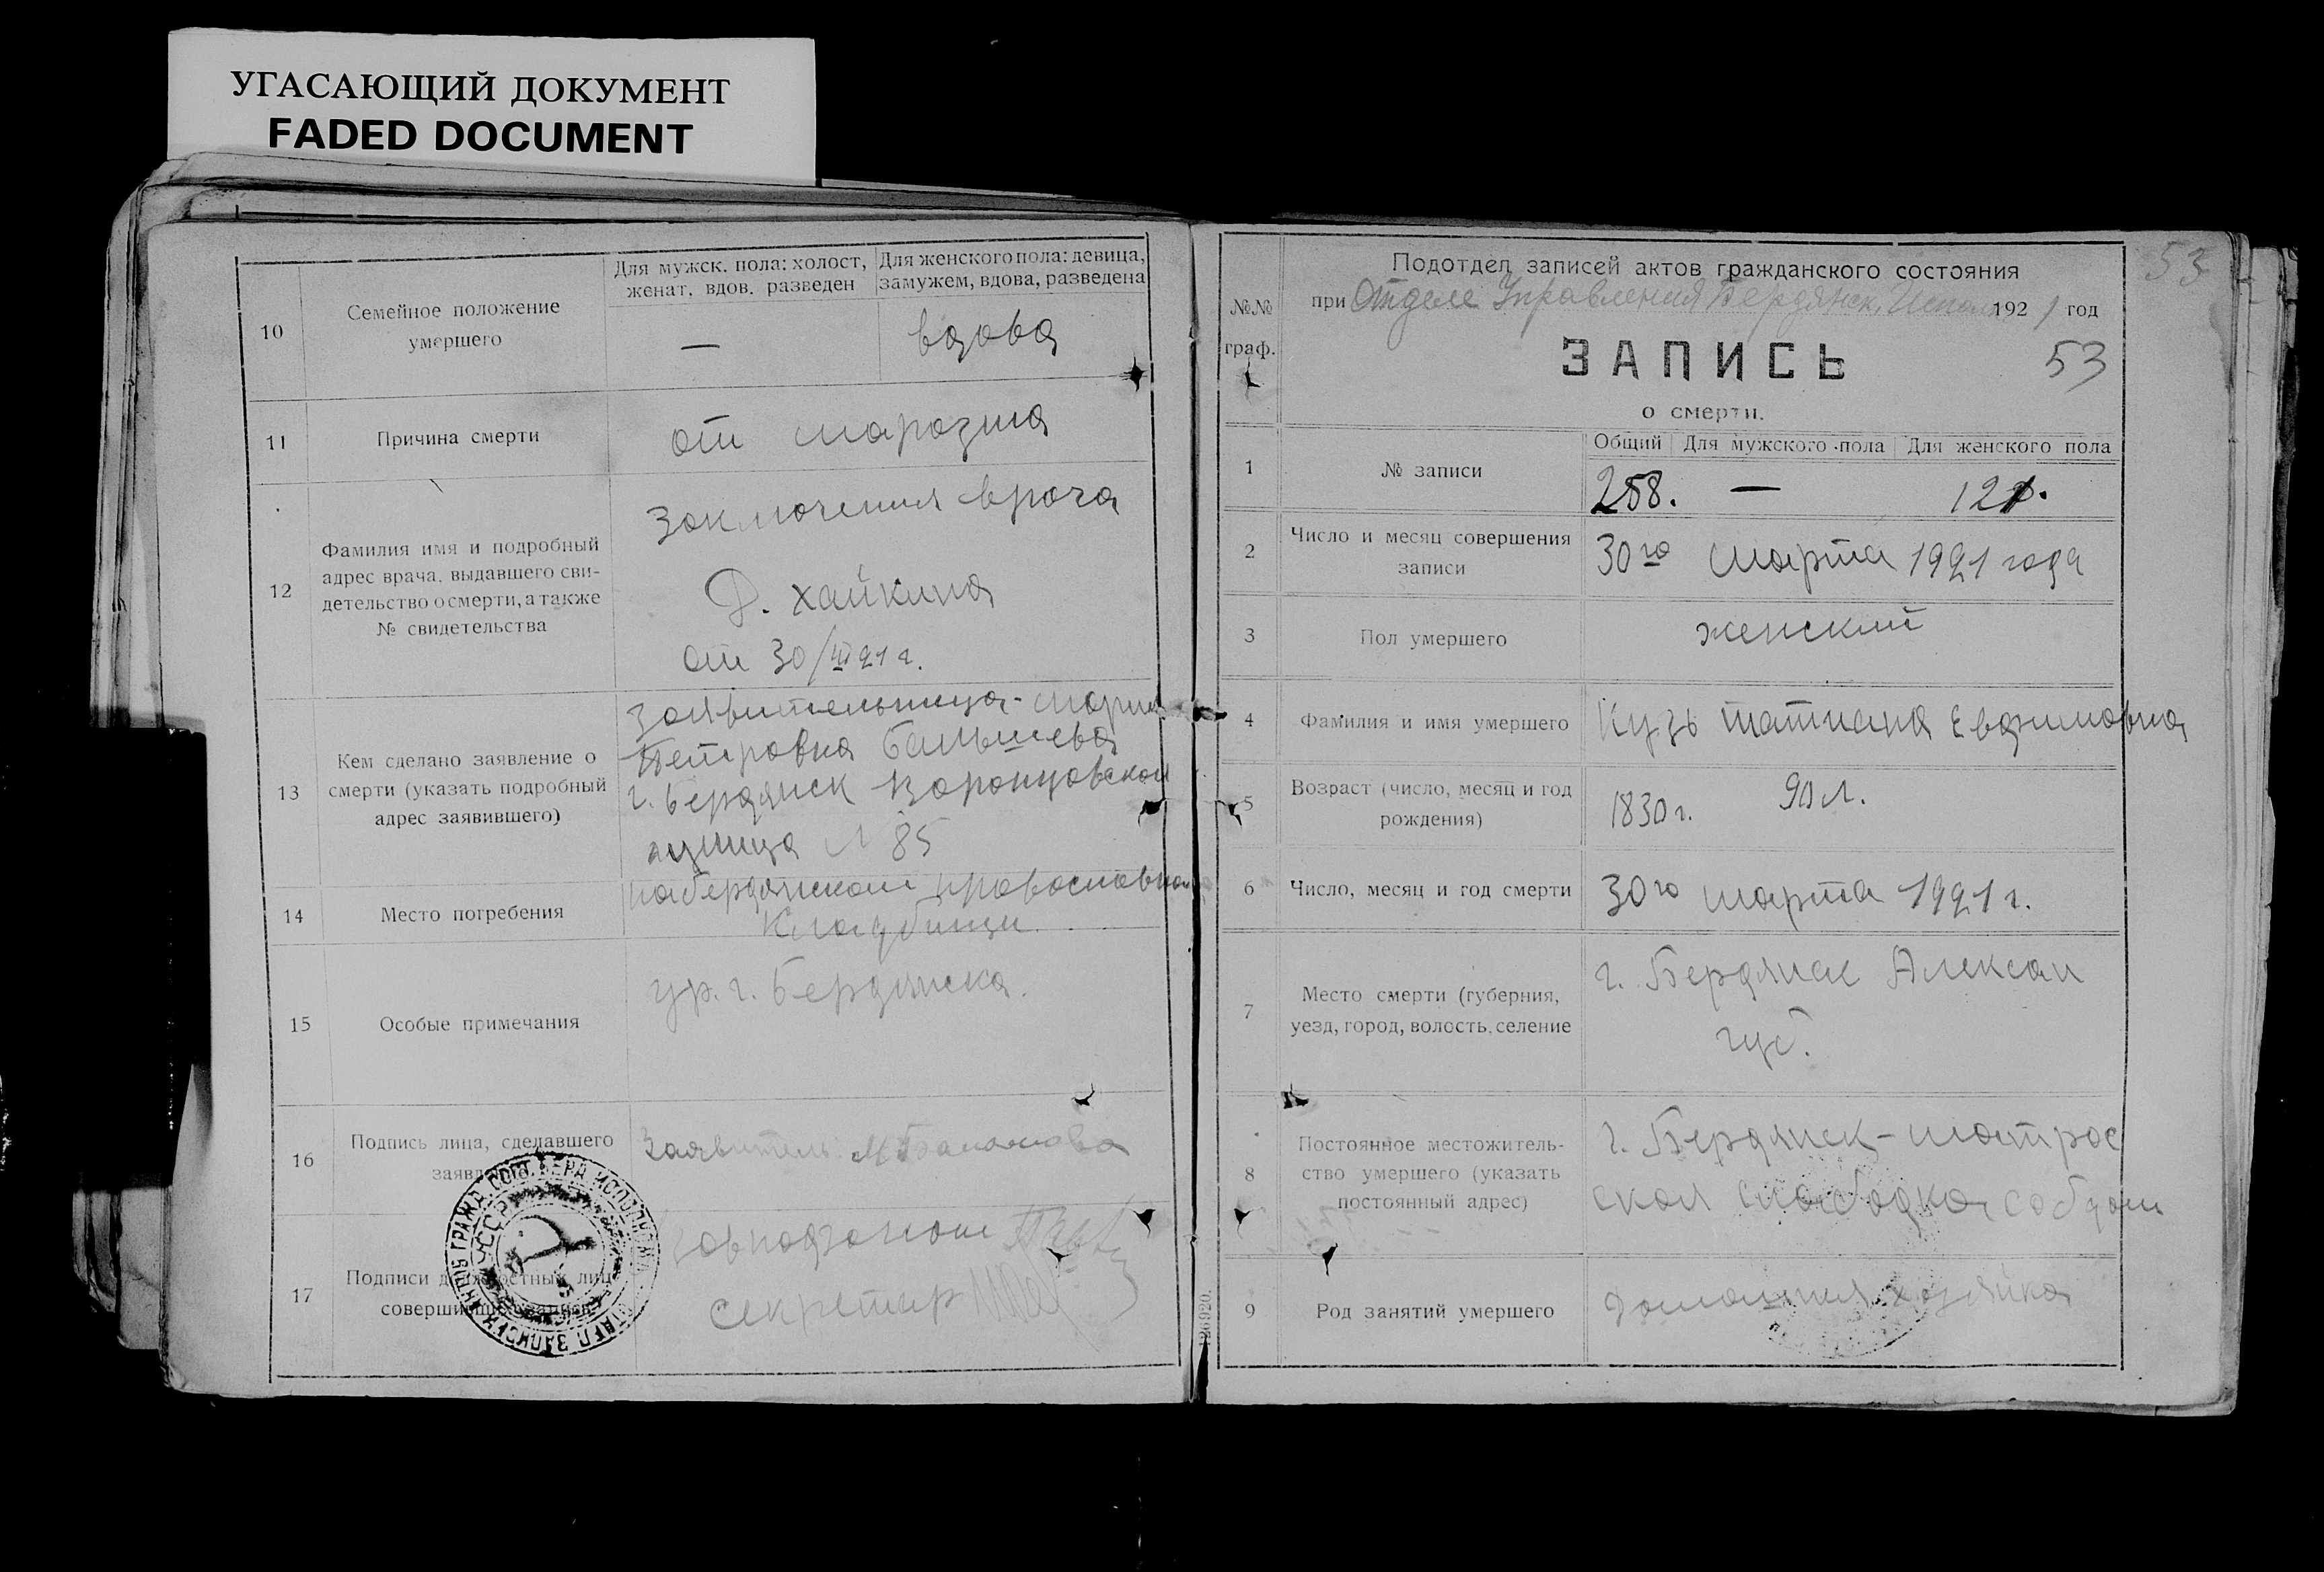 УГАСАЮЩИЙ ДОКУМЕНТ
FADED DOCUMENT
10
Семейное положение
умершего
Для мужск. пола: холост,
женат, вдов. разведен
—
Для женского пола: девица,
замужем, вдова, разведена
вдова
11
Причина смерти
от маразма
12
Фамилия имя и подробный
адрес врача, выдавшего сви-
детельство о смерти, а также
№ свидетельства
Заключения врача
Д. Хайкина
от 30/III 21 г.
13
Кем сделано заявление о
смерти (указать подробный
адрес заявившего)
Заявительница - Мария
Петровна
г. Бердянск Воронцовская
улица № 85
14
Место погребения
на бердянском православном
Кладбищи
15
Особые примечания
ур. г. Бердянска.
16
Подпись лица, сделавшего
Заявитель
17
Подписи
секретар
№№
граф.
53
Подотдел записей актов гражданского состояния
при Отделе Управления Бердянск. Испол 1921 год
ЗАПИСЬ
53
о смерти.
1
№ записи
Общий
Для мужского пола
Для женского пола
258.
—
2
Число и месяц совершения
записи
30го марта 1921 года
3
Пол умершего
женский
4
Фамилия и имя умершего
Кузь Татиана Евдимовна
5
Возраст (число, месяц и год
рождения)
1830 г. 90 л.
6
Число, месяц и год смерти
30го марта 1921 г.
7
Место смерти (губерния,
уезд, город, волость, селение
г. Бердянск Алексан
губ.
8
Постоянное местожитель-
ство умершего (указать
постоянный адрес)
г. Бердянск - матрос
ская слободка
9
Род занятий умершего
домашняя хозяйка